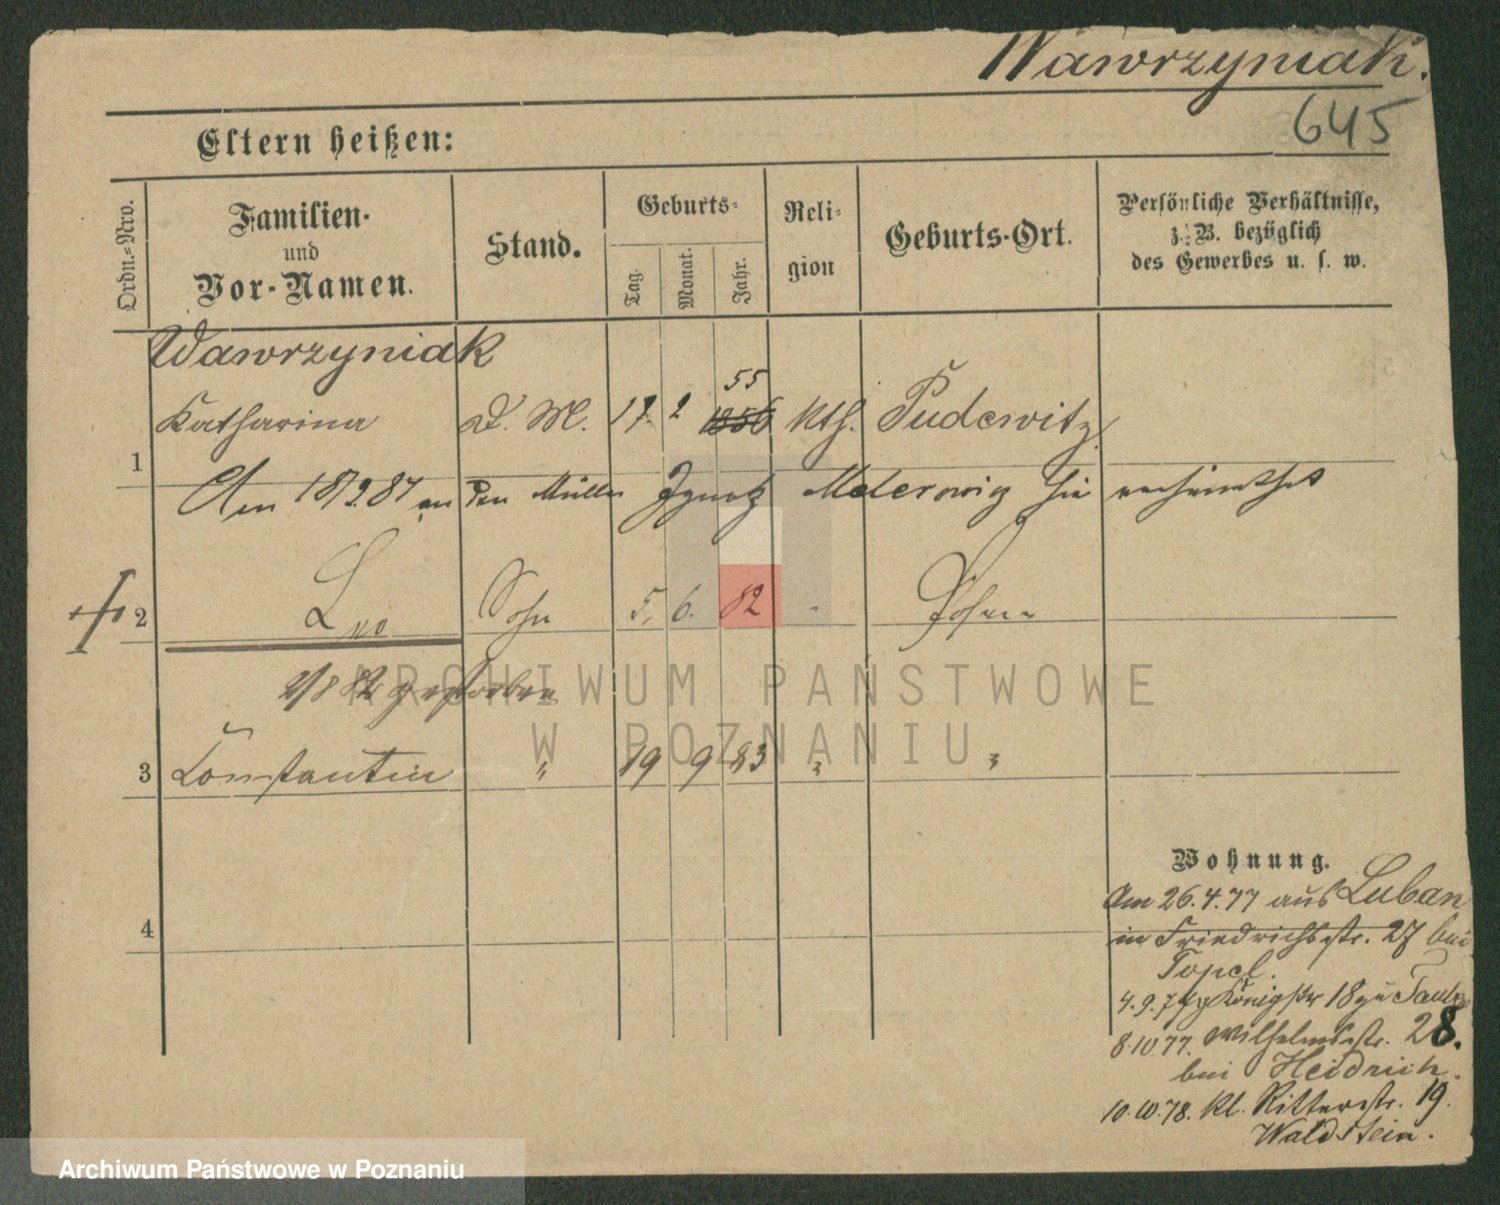 Wawrzyniak.
645
Eltern heißen:
Ordn.-Nro.
Familien- und Vor-Namen.
Stand.
Geburts-
Tag. Monat. Jahr.
Religion
Geburts-Ort.
Persönliche Verhältnisse,
z. B. bezüglich
des Gewerbes u. s. w.
Wawrzyniak
1 Katharina D. M. 17. 2 1856 55 kth. Pudewitz
Am 18/2 87 an den Müller Ignatz hie verheirathet
2 Leo Sohn 5. 6. 82 " Posen
2/8 82 gestorben
3 Constantin " 19 9 83 " "
4
Wohnung.
Am 26.4.77 aus Luban
in Friedrichsstr. 27 bei
Topel.
4.9.77 Königstr 18 zu
8.10.77. Wilhelmsstr. 28.
bei Heidrich.
10.10.78. Kl. Ritterstr. 19.
Waldstein.
ARCHIWUM PAŃSTWOWE
W POZNANIU
Archiwum Państwowe w Poznaniu